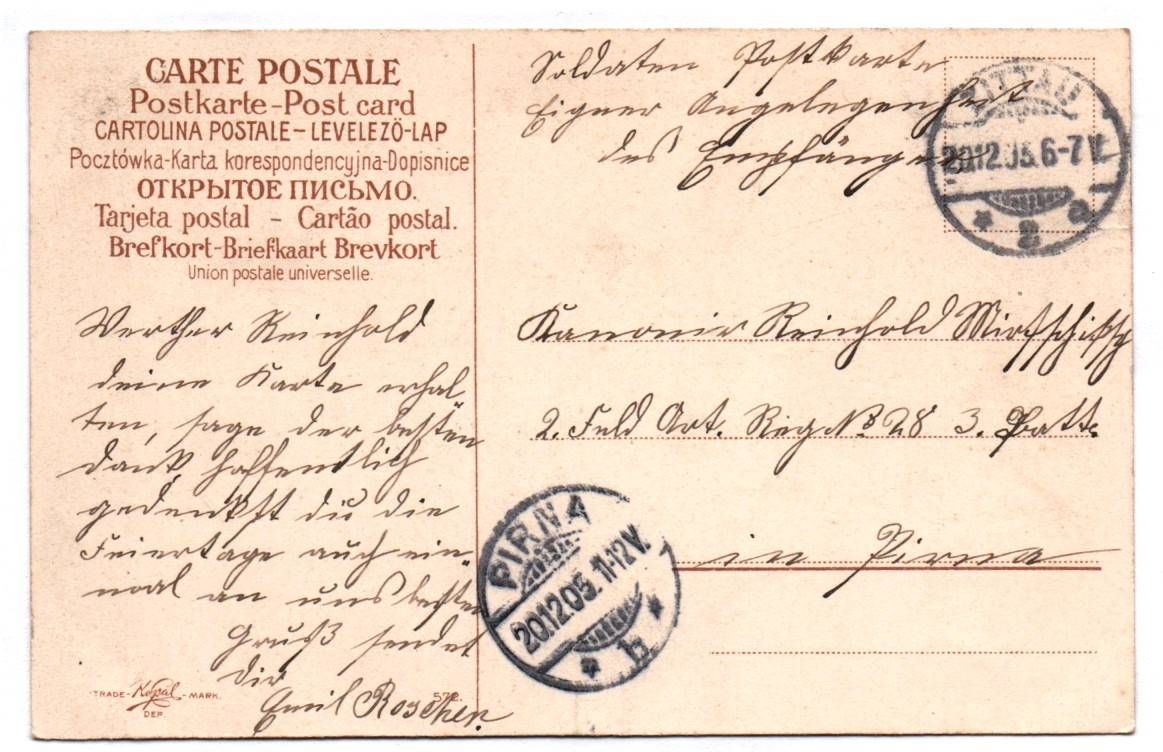 CARTE POSTALE
Postkarte-Post card
CARTOLINA POSTALE-LEVELEZÖ-LAP
Pocztówka-Karta korespondencyjna-Dopisnice
ОТКРЫТОЕ ПИСЬМО.
Tarjeta postal - Cartão postal.
Brefkort-Briefkaart Brevkort
Union postale universelle.
Werther Reinhold
deine Karte erhal-
ten, sage der besten
dank hoffentlich
gedenkst du die
Feiertage auch ein-
mal an uns besten
Gruß sendet
dir
Emil
TRADE-Kopal-MARK.
DEP.
572.
Soldaten Postkarte
Eigner Angelegenheit
des Empfängers
ZITTAU
20.12.05.6-7V.
* 2 a
Kanonir Reinhold
2. Feld Art. Reg No 28 3. Batt.
in Pirna
PIRNA
20.12.05.11-12V.
* b *